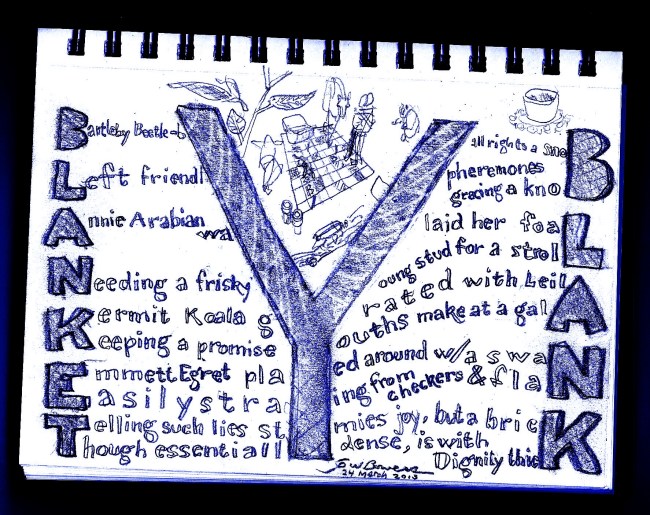 Bartleby Beetle-b Y all rights a sno B
Left friendl Y pheremones gracing a kno B
Annie Arabian wa Y laid her foa L
Needing a frisky Young stud for a stroll
Kermit Koala g rated with Leil A
Keeping a promise Youths make at a gal A
Emmett Egret pla Yed around w/a swa N
Easily stra Ying from checkers & fla N
Telling such lies st Ymies joy, but a bric K
Though essentiall Y dense, is with Dignity thic K
24 March 2013